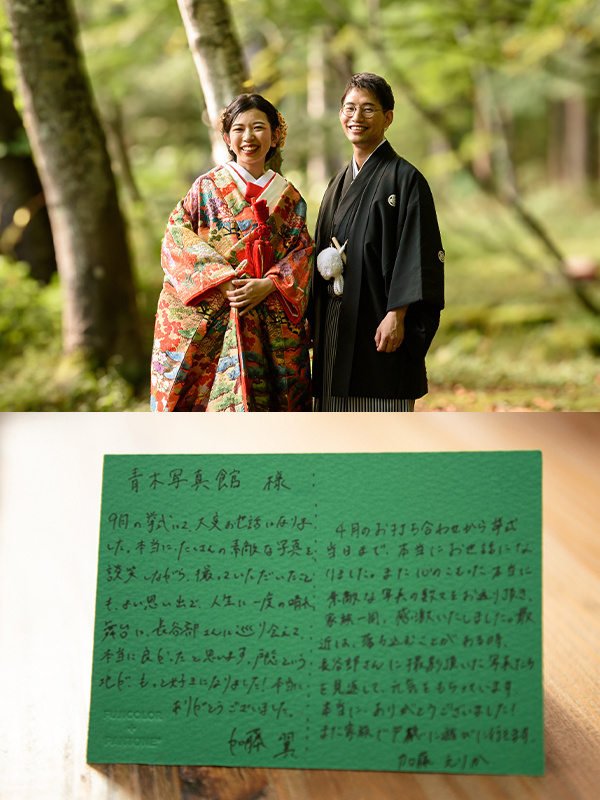 青木写真館 様
9月の挙式にて、大変お世話になりま
した。本当に、たくさんの素敵な写真を、
談笑しながら、撮っていただいたこと
も、よい思い出で、人生に一度の晴れ
舞台に、長谷部さんに巡り会えて、
本当に良かったと思います。戸隠という
地が もっと好きになりました！本当に
ありがとうございました。
加藤 翼
4月のお打ち合わせから挙式
当日まで、本当にお世話にな
りました。また 心のこもった本当に
素敵な写真の数々をお送り頂き、
家族一同、感謝いたしました。最
近は、落ち込むことがある時、
長谷部さんに撮影頂いた写真たち
を見返して、元気をもらっています。
本当に、ありがとうございました！
また家族で戸隠に遊びに行きます。
加藤 えりか
FUJICOLOR